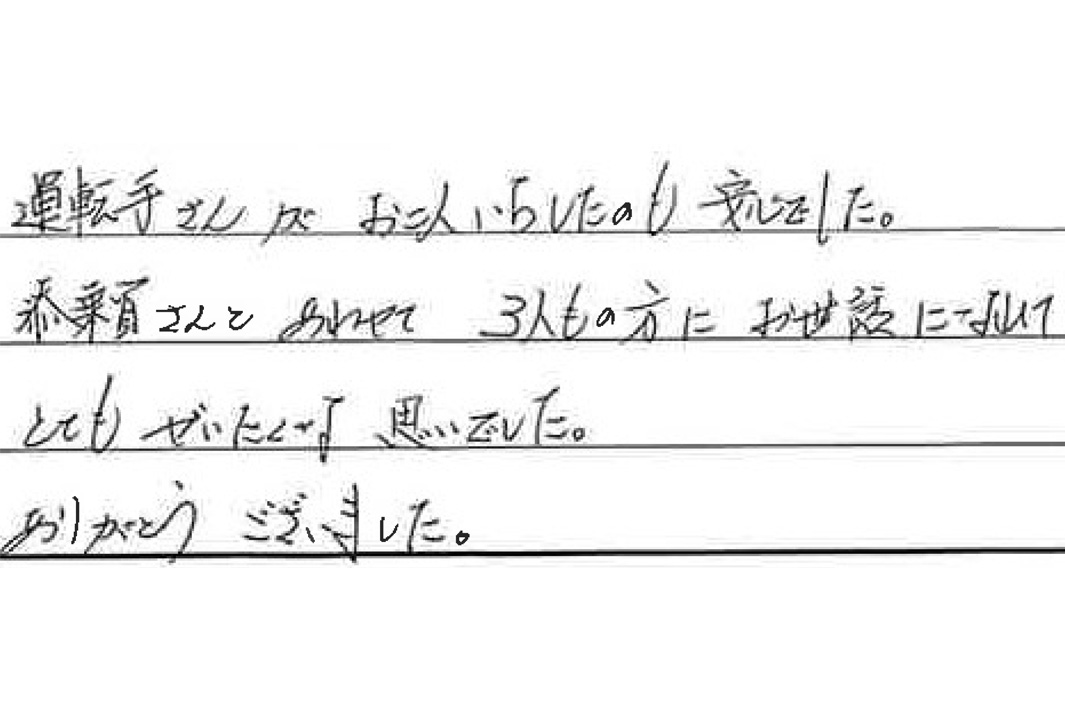 運転手さんが お二人いらしたのも 安心でした。
添乗員さんと あわせて 3人もの方に お世話になって
とても ぜいたくな 思いでした。
ありがとう ございました。